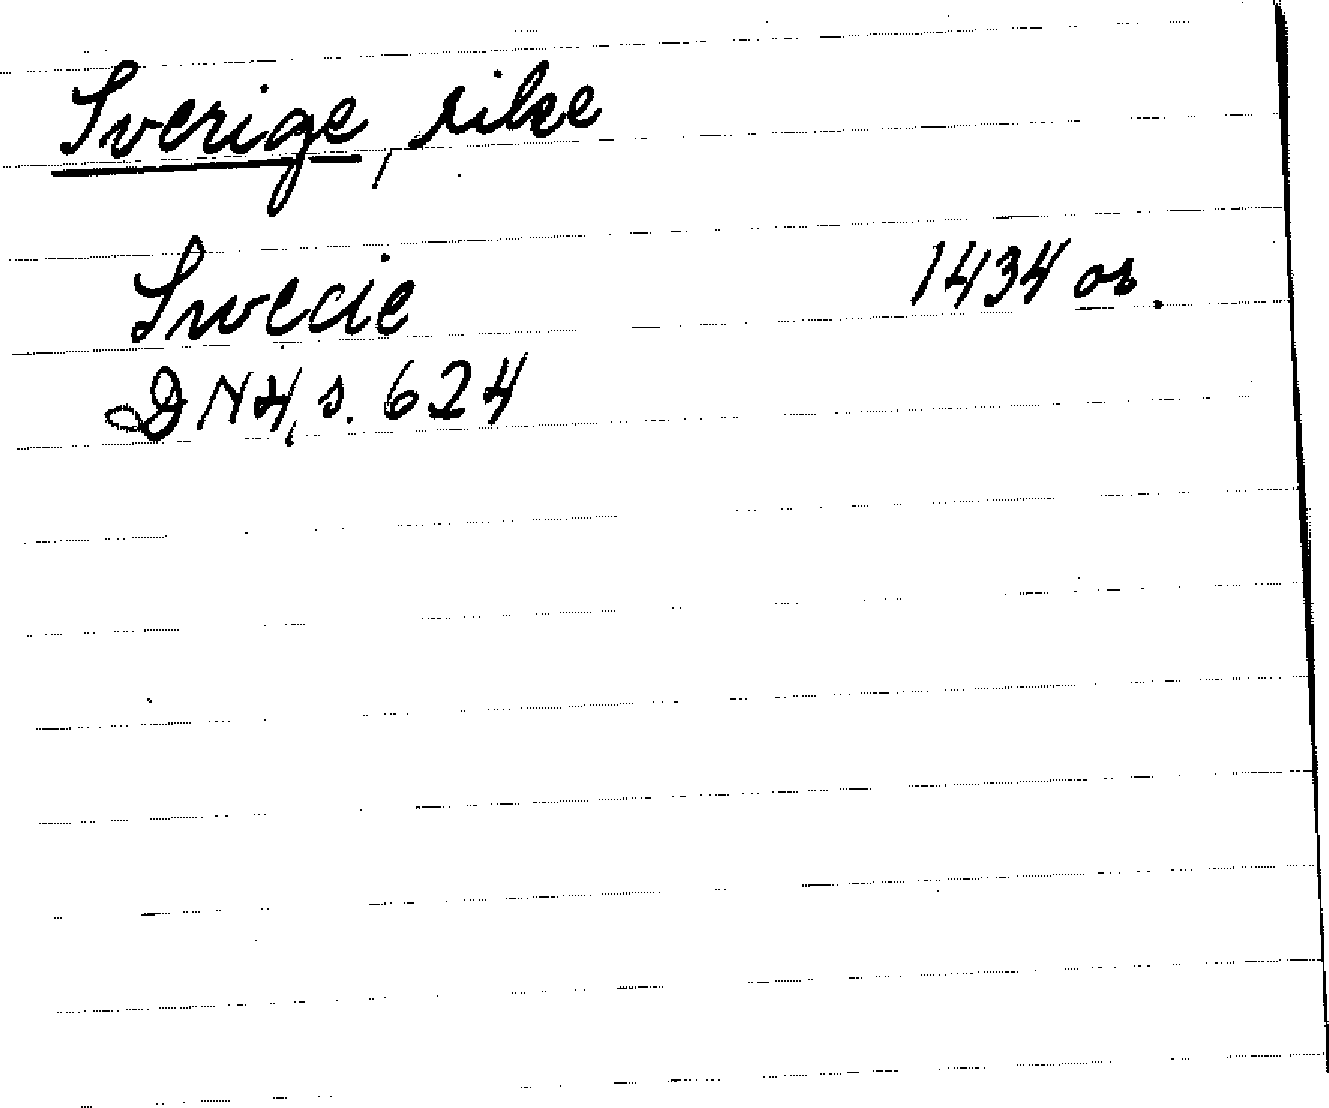 Sverige, rike
Swecie 1434 or.
DN4, s. 624